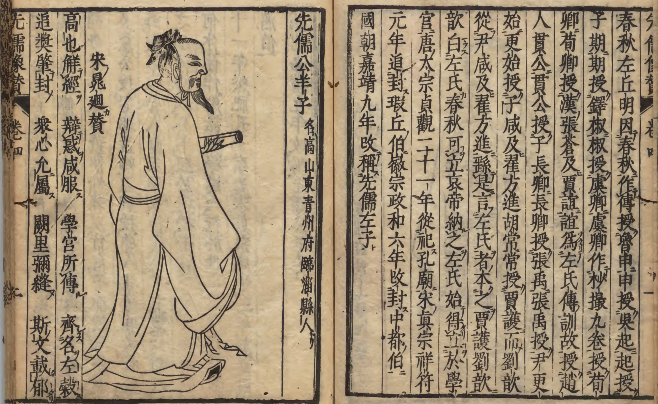 春秋左丘明因春秋作傳授曾申申授吳起起授
子期期授鐸椒椒授虞卿虞卿作杪撮九卷授荀
卿荀卿授漢張蒼及賈誼誼爲左氏傳訓故授趙
人貫公貫公授子長卿長卿授張禹張禹授尹更
始更始授子咸及翟方進胡常常授賈護而劉歆
從尹咸及翟方進縣是言左氏者本之賈護劉歆
歆白左氏春秋可立哀帝納之左氏始得立於學
官唐太宗貞觀二十一年從祀孔廟宋真宗祥符
元年追封瑕丘伯徽宗政和六年改封中都伯
國朝嘉靖九年改稱先儒左子
先儒公羊子 名高山東青州府臨淄縣人
宋晁迥贊
高也解經 辯裁咸服 學官所傳 齊名左穀
追獎肇封 衆心允屬 闕里彌縫 斯文載郁
先儒像贊 卷四